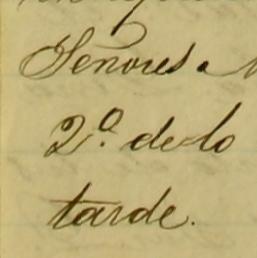 Señores
2º. de lo
tarde.